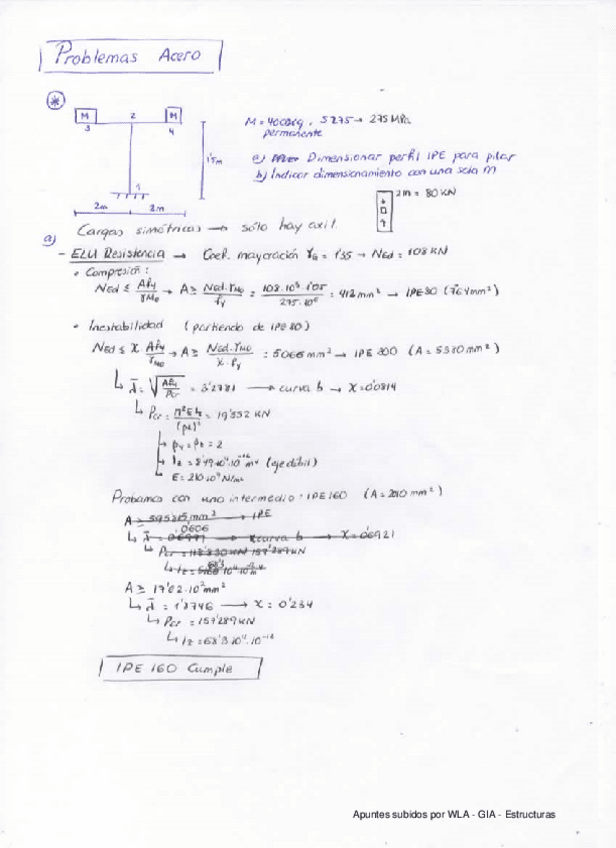 Problemas Acero
M 2 M
3 4
M = 4000kg, S275 → 275 MPa
permanente
1'5m
a) Dimensionar perfil IPE para pilar
b) Indicar dimensionamiento con una sola M
1
2m 2m
2m = 80 KN
Cargas simétricas → sólo hay axil.
a)
- ELU Resistencia → Coef. mayoración γG = 1'35 → Ned = 108 KN
• Compresión:
Ned ≤ Afy/γM0 → A ≥ Ned·γM0/fy = 108·10³·1'05/275·10⁶ = 412 mm² → IPE80 (764mm²)
• Inestabilidad (partiendo de IPE80)
Ned ≤ χ Afy/γM0 → A ≥ Ned·γM0/χ·fy = 5066 mm² → IPE 300 (A = 5380 mm²)
↳ λ̄ = √(Afy/Pcr) = 3'2781 → curva b → χ = 0'0814
↳ Pcr = π²EIz/(βL)² = 19'552 KN
↳ βy = βz = 2
↳ Iz = 8'49·10⁴·10⁻¹² m⁴ (eje débil)
↳ E = 210·10⁹ N/m²
Probamos con uno intermedio: IPE160 (A = 2010 mm²)
A ≥ 595'215 mm² → IPE
0'606
↳ λ̄ = → curva b → χ = 0'6921
↳ Pcr = 157'289 KN
↳ Iz =
A ≥ 17'62·10² mm²
↳ λ̄ = 1'8746 → χ = 0'234
↳ Pcr = 157'289 KN
↳ Iz = 68'3·10⁴·10⁻¹²
IPE 160 Cumple
Apuntes subidos por WLA - GIA - Estructuras